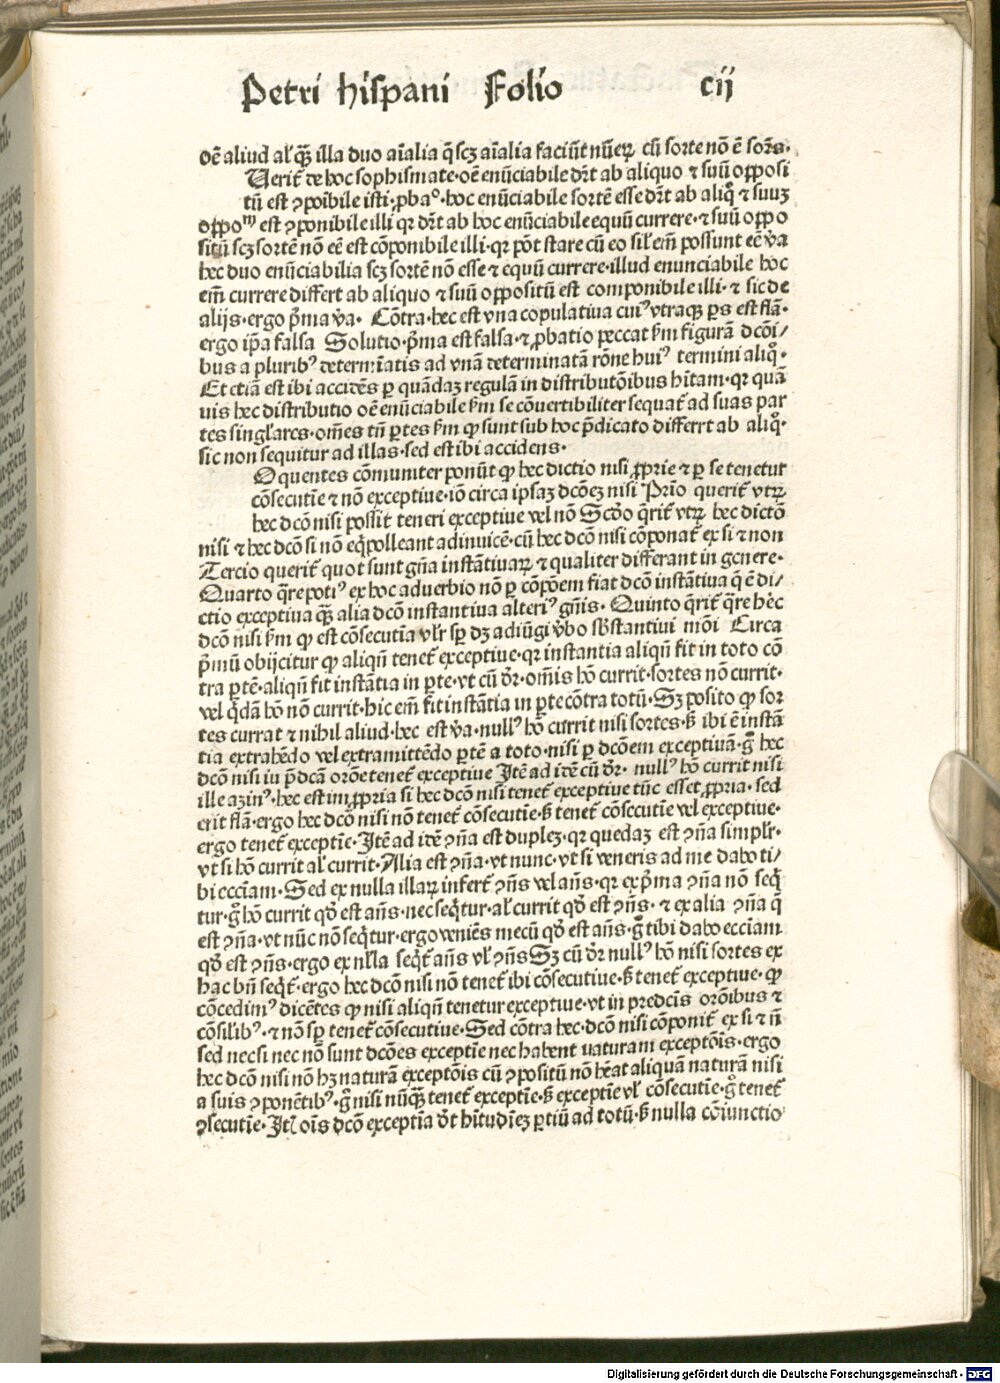 Petri hispani Folio cij
oē aliud al' q̄ȝ illa duo aīalia q̄ scȝ aīalia faciūt nūeꝝ cū sorte nō ē sors.
Uerit̄ de hoc sophismate. oē enūciabile drt̄ ab aliquo ⁊ suū opposi
tū est ꝯpoībile isti. ꝓbaº. hoc enūciabile sortē esse drt̄ ab aliq̊ ⁊ suuȝ
oppoᵐ est ꝯponibile illi qꝛ drt̄ ab hoc enūciabile equū currere. ⁊ suū oppo
sitū scȝ sortē nō eē est cōponibile illi. qꝛ pōt stare cū eo sil' em̄ possunt eē v̄a
hec duo enūciabilia scȝ sortē nō esse ⁊ equū currere. illud enunciabile hoc
em̄ currere differt ab aliquo ⁊ suū oppositū est componibile illi. ⁊ sic de
alijs. ergo p̄ma v̄a. Cōtra. hec est vna copulatiua cuiꝰ vtraqꝫ ps est flā.
ergo ip̄a falsa Solutio. p̄ma est falsa. ⁊ ꝓbatio peccat ẜm figurā dcōi/
bus a pluribꝰ determīatis ad vnā determinatā rōne huiꝰ termini aliq̊.
Et etiā est ibi accidēs ꝑ quādaȝ regulā in distributōibus hītam. qꝛ quā
uis hec distributio oē enūciabile ẜm se cōuertibiliter sequat̄ ad suas par
tes singl'ares. om̄es tn̄ ꝑtes ẜm ꝙ sunt sub hoc p̄dicato differrt ab aliq̊.
sic non sequitur ad illas. sed est ibi accidens.
O quentes cōmuniter ponūt ꝙ hec dictio nisi ꝓprie ⁊ ꝑ se tenetur
cōsecutīe ⁊ nō exceptiue. iō circa ipsaȝ dcōeȝ nisi Prīo querit̄ vtꝝ
hec dcō nisi possit teneri exceptiue vel nō Scd̄o q̄rit̄ vtꝝ hec dictō
nisi ⁊ hec dcō si nō eq̄polleant adinuicē. cū hec dcō nisi cōponat̄ ex si ⁊ non
Tercio querit̄ quot sunt gn̄a instātiuaꝝ ⁊ qualiter differant in genere.
Quarto q̄re potiꝰ ex hoc aduerbio nō ꝑ cōpōem fiat dcō instātiua q̄ ē di/
ctio exceptiua q̄ȝ alia dcō instantiua alteriꝰ gn̄is. Quinto q̄rit̄ q̄re hec
dcō nisi ẜm ꝙ est cōsecutīa vl'r sp̄ dȝ adiūgi v̄bo sb̄stantiui mōi Circa
p̄mū obijcitur ꝙ aliqn̄ tenet̄ exceptiue. qꝛ instantia aliqn̄ fit in toto cō
tra ꝑtē. aliqn̄ fit instātia in ꝑte. vt cū dr̄. om̄is hō currit. sortes nō currit.
vel q̄dā hō nō currit. hic em̄ fit instātia in ꝑte cōtra totū. Sȝ posito ꝙ sor
tes currat ⁊ nihil aliud. hec est v̄a. nullꝰ hō currit nisi sortes. ẜ ibi ē instā
tia extrahēdo vel extramittēdo ꝑtē a toto. nisi ꝑ dcōem exceptiuā. g̊ hec
dcō nisi in p̄dcā orōe tenet̄ exceptiue Itē ad idē cū dr̄. nullꝰ hō currit nisi
ille azinꝰ. hec est imꝓpria si hec dcō nisi tenet̄ exceptiue tūc esset ꝓpria. sed
erit flā. ergo hec dcō nisi nō tenet̄ cōsecutīe. ẜ tenet̄ cōsecutīe vel exceptiue.
ergo tenet̄ exceptīe. Itē ad idē ꝯn̄a est duplex. qꝛ quedaȝ est ꝯn̄a simpl'r.
vt si hō currit al' currit. Alia est ꝯn̄a. vt nunc. vt si veneris ad me dabo ti/
bi ecclām. Sed ex nulla illaꝝ infert̄ ꝯn̄s vel an̄s. qꝛ ex p̄ma ꝯn̄a nō seq̄
tur. g̊ hō currit qd̊ est an̄s. nec seq̄tur. al' currit qd̊ est ꝯn̄s. ⁊ ex alia ꝯn̄a q̄
est ꝯn̄a. vt nūc nō seq̄tur. ergo veniēs mecū qd̊ est an̄s. g̊ tibi dabo ecclām
qd̊ est ꝯn̄s. ergo ex nl'la seq̄t̄ an̄s vl' ꝯn̄s Sȝ cū dr̄ nullꝰ hō nisi sortes ex
hac bn̄ seq̄t̄. ergo hec dcō nisi nō tenet̄ ibi cōsecutiue. ẜ tenet̄ exceptiue. ꝙ
cōcedimꝰ dicētes ꝙ nisi aliqn̄ tenetur exceptiue. vt in predcīs orōibus ⁊
cōsil'ibꝰ. ⁊ nō sp̄ tenet̄ cōsecutiue. Sed cōtra hec. dcō nisi cōponit̄ ex si ⁊ n̄
sed nec si nec nō sunt dcōes exceptīe nec habent naturam exceptōis. ergo
hec dcō nisi nō hȝ naturā exceptōis cū ꝯpositū nō hēat aliquā naturā nisi
a suis ꝯponētibꝰ. g̊ nisi nūq̄ȝ tenet̄ exceptīe. ẜ exceptīe vl' cōsecutīe. g̊ tenet̄
ꝯsecutīe. Itē oīs dcō exceptīa dt̄ hītudīeȝ ꝑtiū ad totū. ẜ nulla cōiunctio
Digitalisierung gefördert durch die Deutsche Forschungsgemeinschaft - DFG